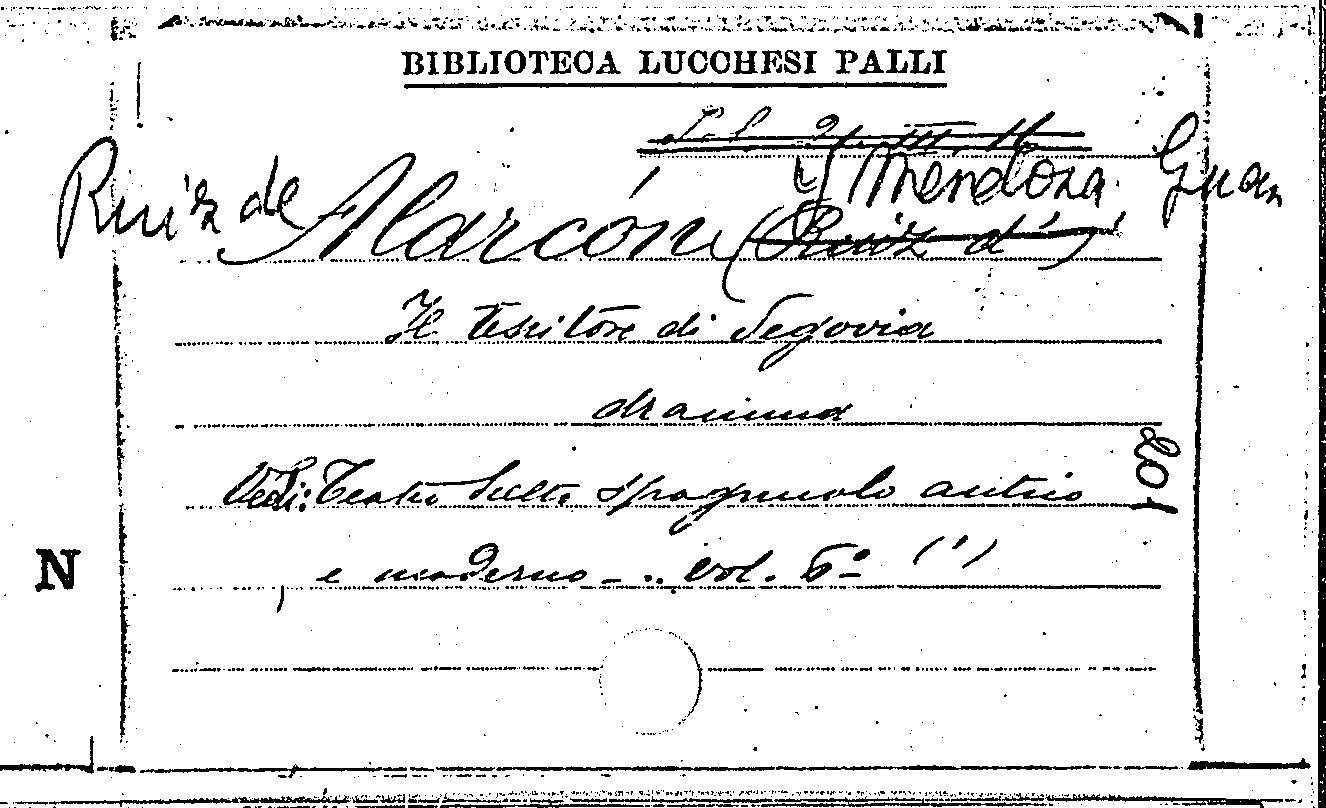 BIBLIOTECA LUCCHESI PALLI
Ruiz de Alarcón (Ruiz d') y Mendoza Guan
Il tessitore di Segovia
dramma
Vedi: Teatro scelto spagnuolo antico
e moderno - .. vol. 6º (1)
N